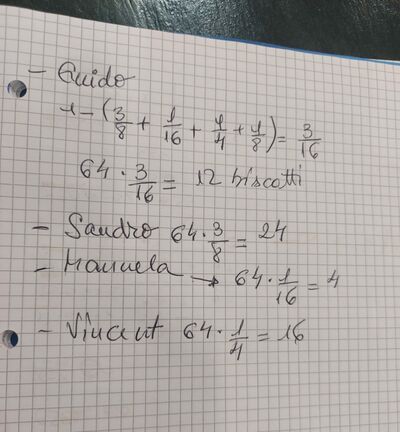 - Guido
1 - (3/8 + 1/16 + 1/4 + 1/8) = 3/16
64 · 3/16 = 12 biscotti
- Sandro 64 · 3/8 = 24
- Manuela → 64 · 1/16 = 4
- Vincent 64 · 1/4 = 16